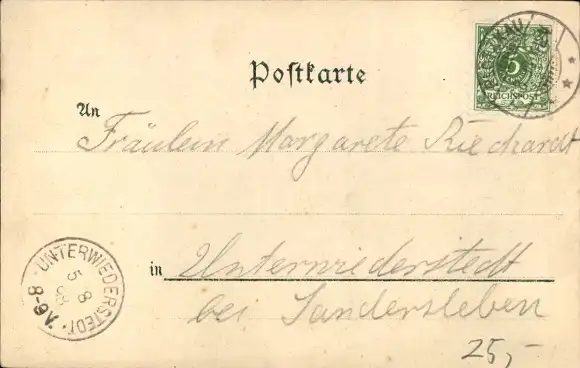 Postkarte
5
REICHSPOST
An
Fräulein Margarete Riechardt
in Unterwiederstedt
bei Sandersleben
UNTERWIEDERSTEDT
5 8
8-9 V.
25,-